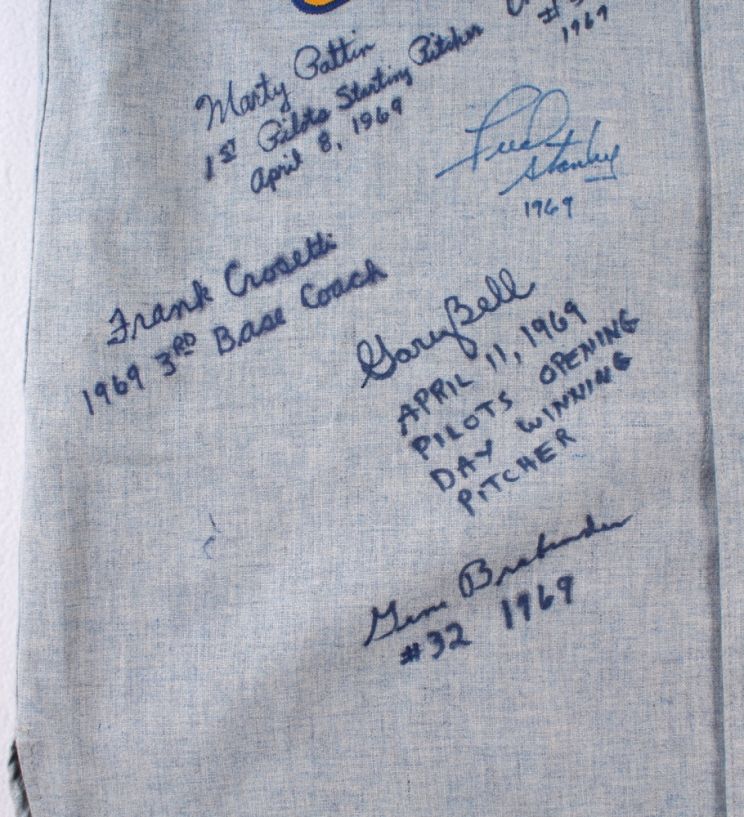 Marty Pattin
1st Pilots Starting Pitcher
April 8, 1969
1969
Fred
Stanley
1969
Frank Crosetti
1969 3RD Base Coach
Gary Bell
APRIL 11, 1969
PILOTS OPENING
DAY WINNING
PITCHER
Gene Brabender
#32 1969